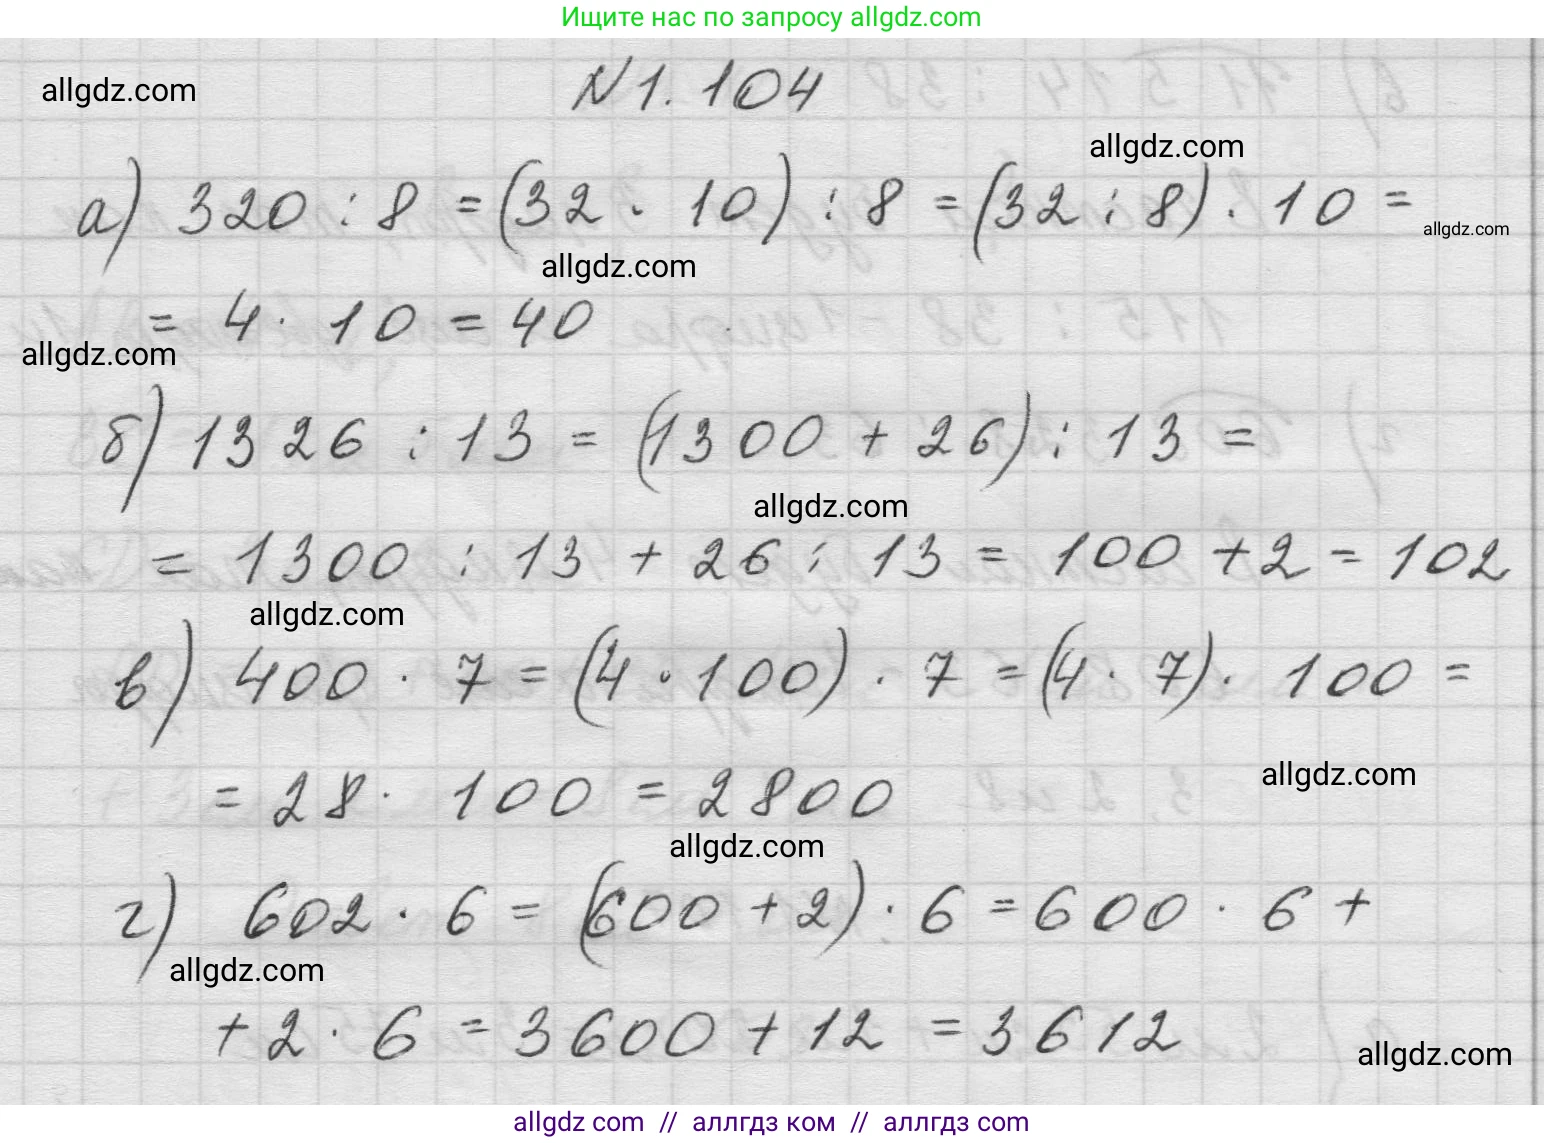 Ищите нас по запросу allgdz.com
allgdz.com
N 1. 104
allgdz.com
а) 320 : 8 = (32 · 10) : 8 = (32 : 8) · 10 =
allgdz.com
allgdz.com
= 4 · 10 = 40
allgdz.com
б) 1326 : 13 = (1300 + 26) : 13 =
allgdz.com
= 1300 : 13 + 26 : 13 = 100 + 2 = 102
allgdz.com
в) 400 · 7 = (4 · 100) · 7 = (4 · 7) · 100 =
allgdz.com
= 28 · 100 = 2800
allgdz.com
г) 602 · 6 = (600 + 2) · 6 = 600 · 6 +
allgdz.com
+ 2 · 6 = 3600 + 12 = 3612
allgdz.com
allgdz com // аллгдз ком // аллгдз com